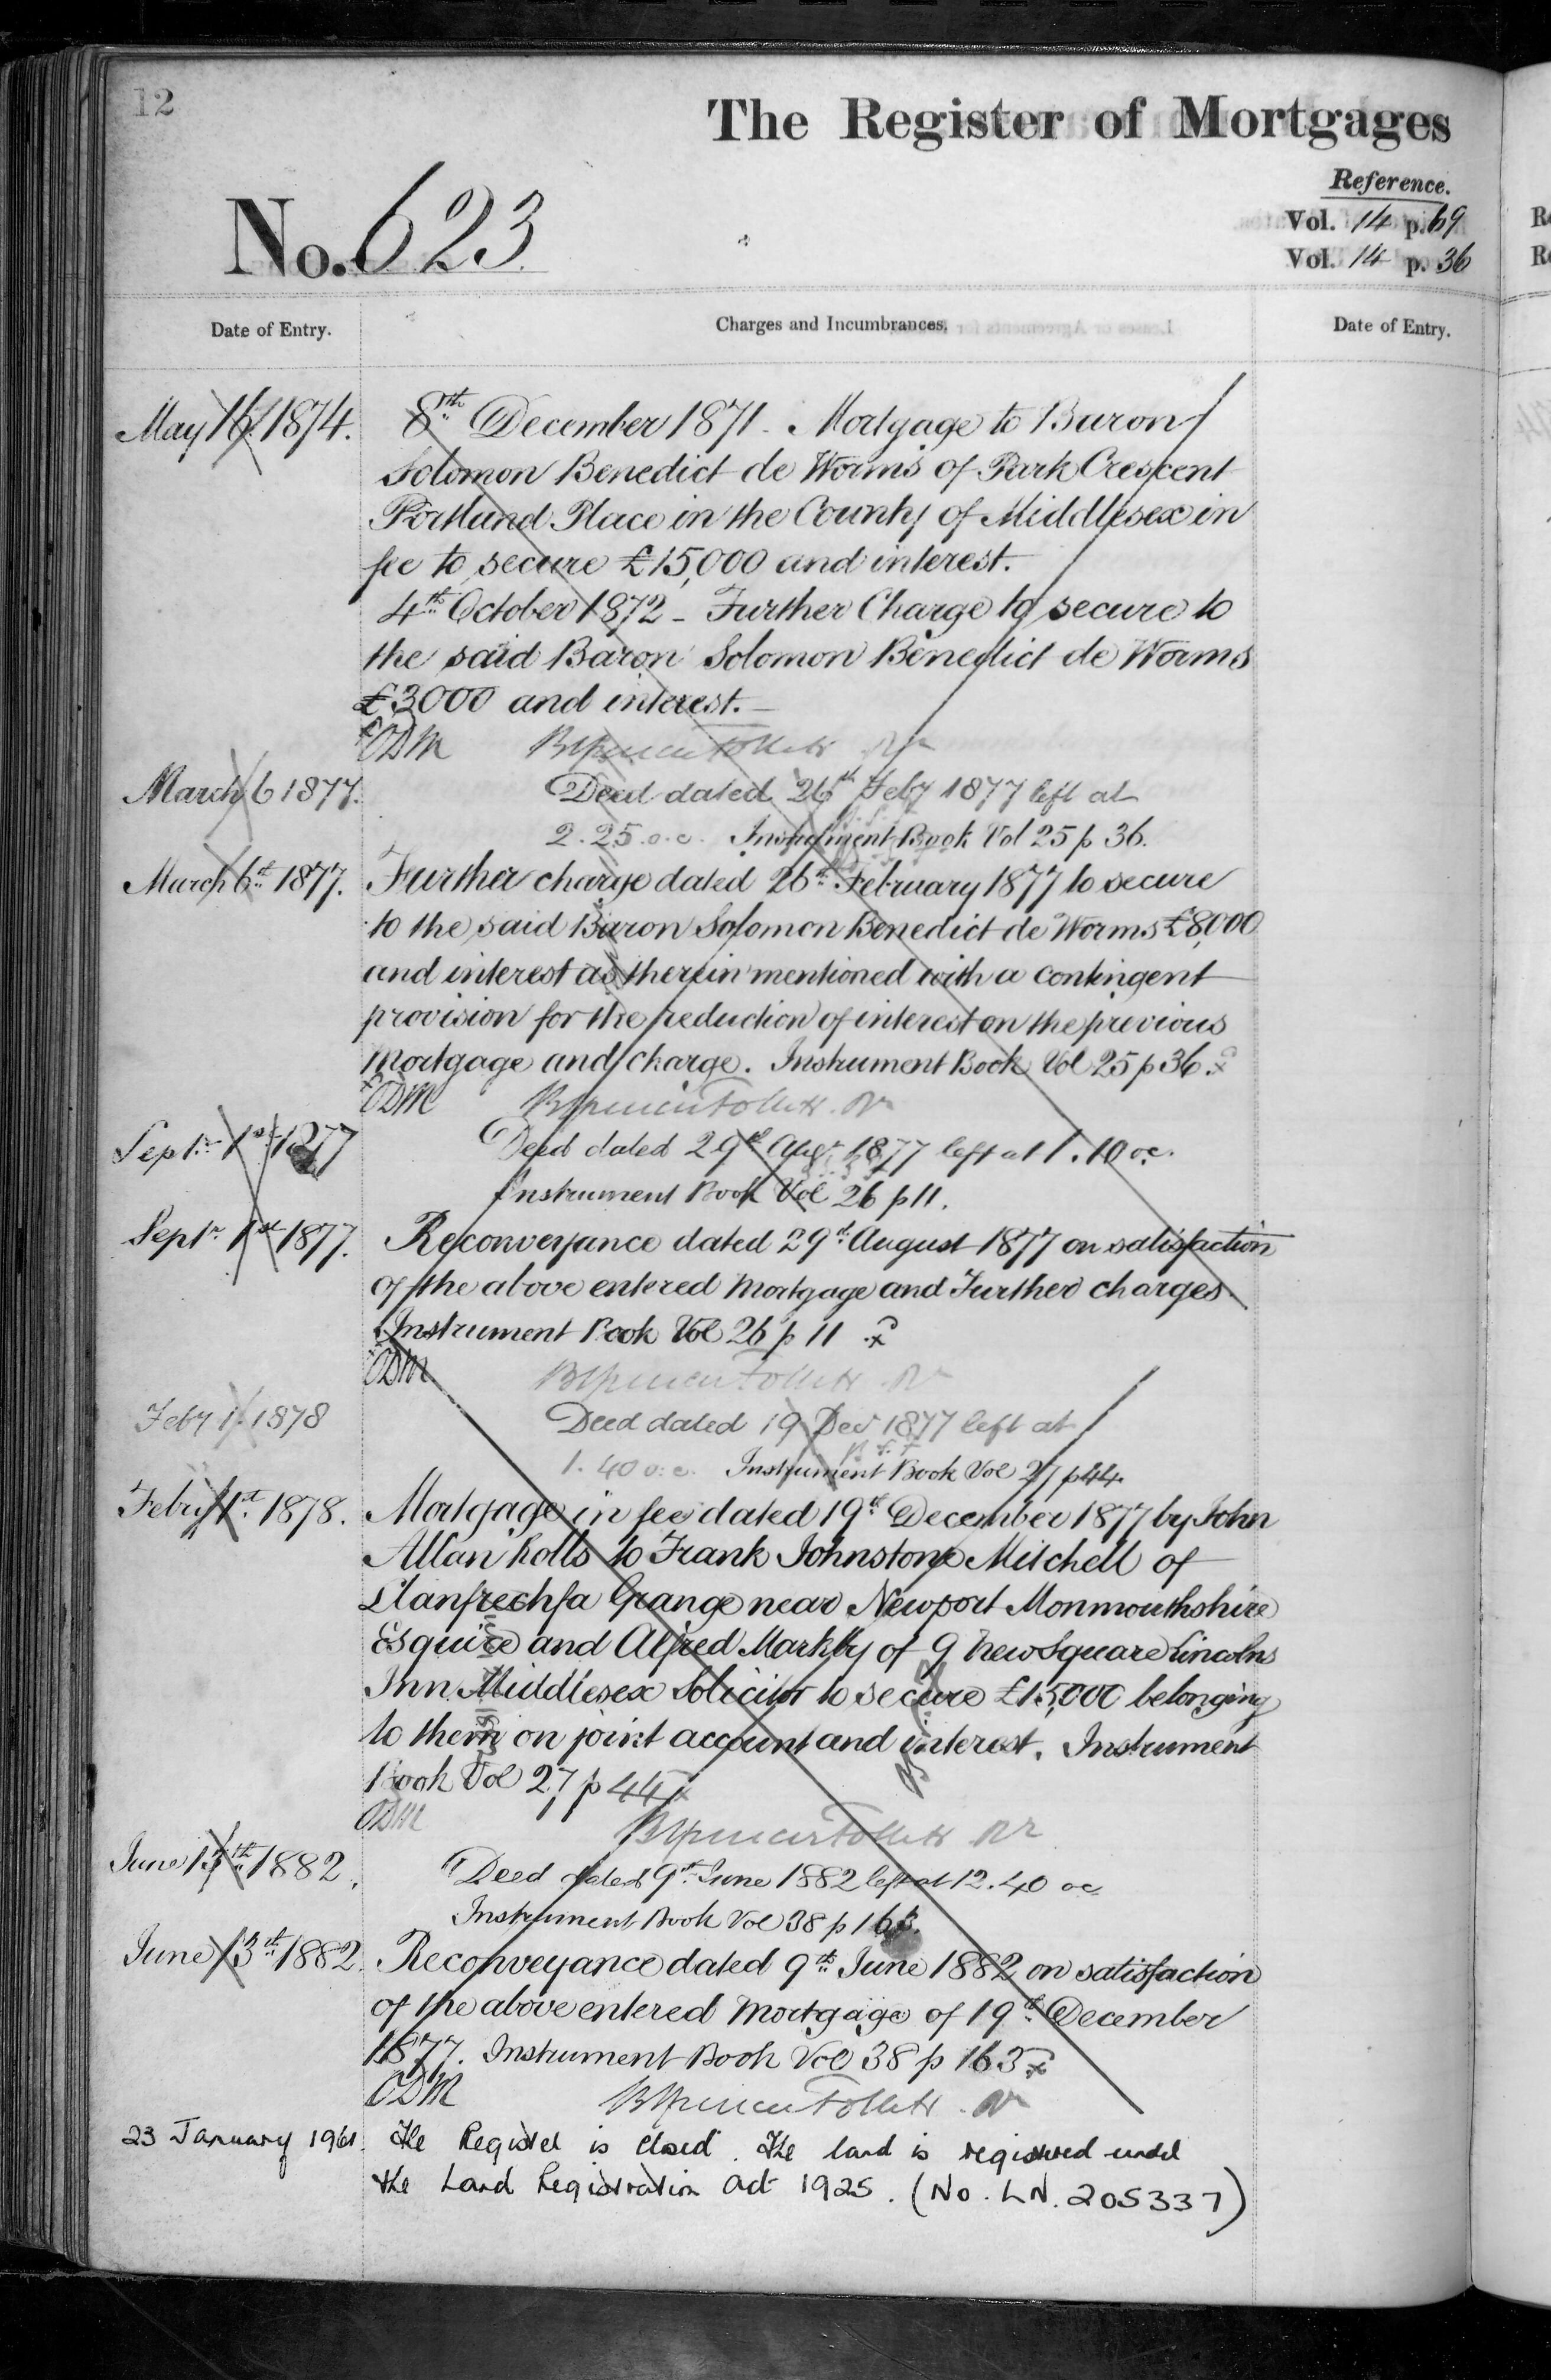 12
The Register of Mortgages
Reference.
No. 623.
Vol. 14 p. 69
Vol. 14 p. 36
Date of Entry.
Charges and Incumbrances.
Date of Entry.
May 16 1874. 8th December 1871 - Mortgage to Baron
Solomon Benedict de Worms of Park Crescent
Portland Place in the County of Middlesex in
fee to secure £15,000 and interest.
4th October 1872 - Further Charge to secure to
the said Baron Solomon Benedict de Worms
£3000 and interest.—
ODM
March 6 1877. Deed dated 26th Feby 1877 left at
2.25 o.c. Instrument Book Vol 25 p 36.
March 6th 1877. Further charge dated 26th February 1877 to secure
to the said Baron Solomon Benedict de Worms £8,000
and interest as therein mentioned with a contingent
provision for the reduction of interest on the previous
Mortgage and charge. Instrument Book Vol 25 p 36.
ODM
Septr 1st 1877 Deed dated 29th Augt 1877 left at 1.10 oc.
Instrument Book Vol 26 p 11.
Septr 1st 1877. Reconveyance dated 29th August 1877 on satisfaction
of the above entered Mortgage and Further charges
Instrument Book Vol 26 p 11
ODM
Feby 1 1878 Deed dated 19 Decr 1877 left at
1.40 o.c. Instrument Book Vol 27 p 44.
Feby 1st 1878. Mortgage in fee dated 19th December 1877 by John
Allan Rolls to Frank Johnstone Mitchell of
Llanfrechfa Grange near Newport Monmouthshire
Esquire and Alfred Markby of 9 New Square Lincolns
Inn Middlesex Solicitor to secure £15,000 belonging
to them on joint account and interest. Instrument
Book Vol 27 p 44
ODM
June 13th 1882. Deed dated 9th June 1882 left at 12.40 oc
Instrument Book Vol 38 p 163.
June 13th 1882. Reconveyance dated 9th June 1882 on satisfaction
of the above entered Mortgage of 19th December
1877. Instrument Book Vol 38 p 163
ODM
23 January 1961. The Register is closed. The land is registered under
the Land Registration Act 1925. (No. LN. 205337)